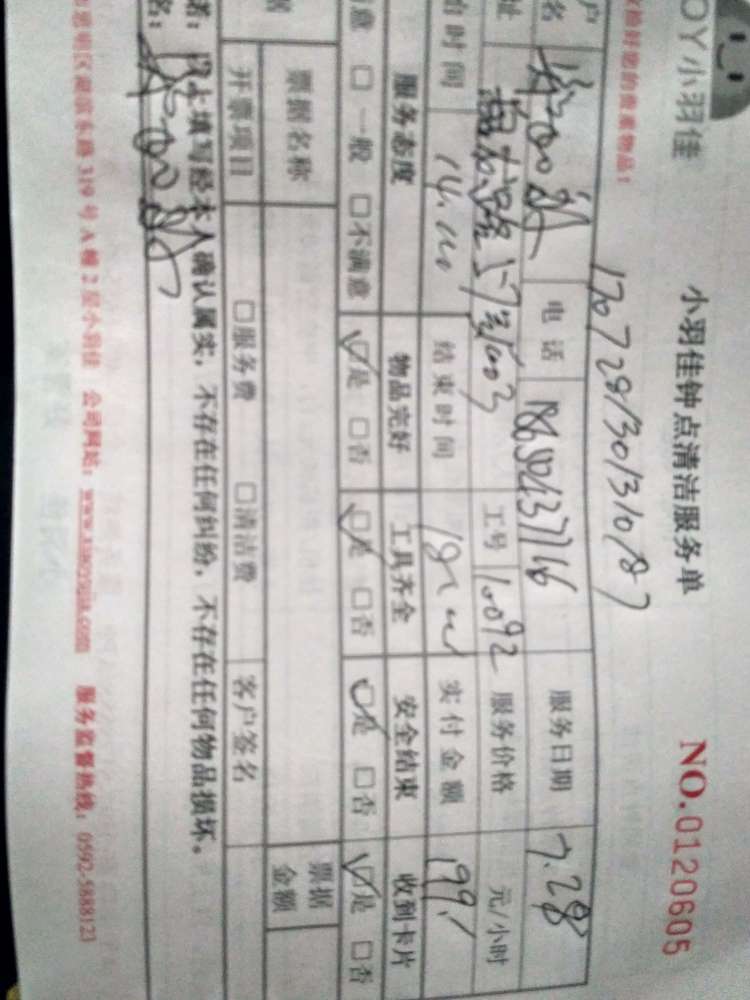 OY小羽佳
收拾好您的贵重物品！
小羽佳钟点清洁服务单
NO.0120605
170728130131018７
户名 电话 服务日期 7.28
址 1003 工号 10092 服务价格 元/小时
始时间 14.00 结束时间 18 实付金额 199.1
服务态度 物品完好 工具齐全 安全结束 收到卡片
意 □一般 □不满意 □是 □否 □是 □否 □是 □否 □是 □否
据 票据名称 票据金额
开票项目 □服务费 □清洁费 客户签名
诺：以上填写经本人确认属实，不存在任何纠纷，不存在任何物品损坏。
名：
思明区湖滨东路319号A幢2层小羽佳 公司网站：www.xiaoyujia.com 服务监督热线：0592-5888123